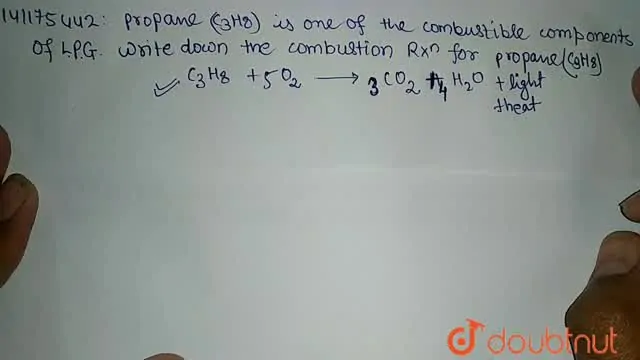 141175442: propane (C3H8) is one of the combustible components
of L.P.G. write down the combustion Rxn for propane (C3H8)
C3H8 + 5O2 → 3CO2 + 4H2O + light
+heat
doubtnut